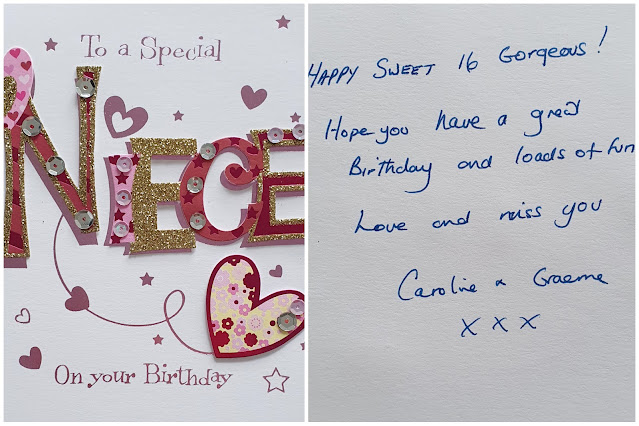 To a Special
NIECE
On your Birthday
HAPPY SWEET 16 Gorgeous!
Hope you have a great
Birthday and loads of fun
Love and miss you
Caroline & Graeme
X X X